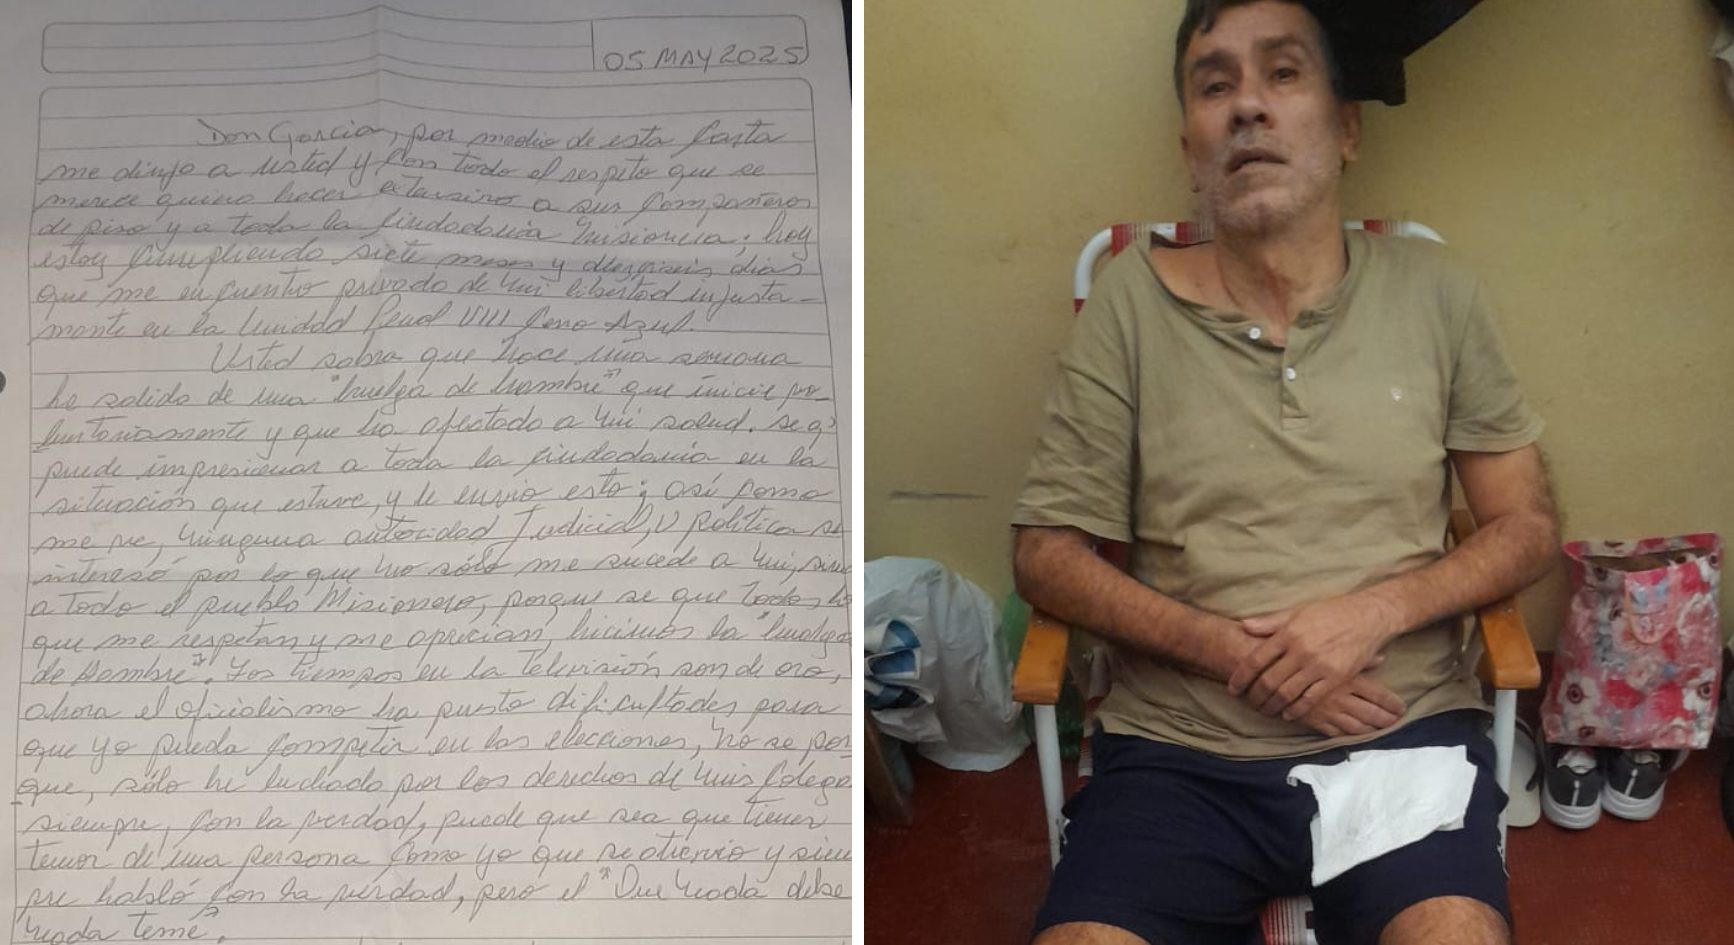 05 MAY 2025
Don Garcia, por medio de esta Carta
me dirijo a usted y con todo el respeto que se
merece quiero hacer extensivo a sus compañeros
de piso y a toda la ciudadania misionera; hoy
estoy cumpliendo siete meses y dieciseis dias
que me encuentro privado de mi libertad injusta-
mente en la Unidad Penal VIII Cerro Azul.
Usted sabra que hace una semana
he salido de una "huelga de hambre" que inicie vo-
luntariamente y que ha afectado a mi salud. se q'
puede impresionar a toda la ciudadania en la
situación que estuve, y le envio esto; así como
me ve, ninguna autoridad Judicial, U politica se
interesó por lo que no sólo me sucede a mi, sino
a todo el pueblo Misionero, porque se que todos los
que me respetan y me aprecian, hicimos la "huelga
de Hambre". Los tiempos en la televisión son de oro,
ahora el oficialismo ha puesto dificultades para
que yo pueda competir en las elecciones, no se por
que, sólo he luchado por los derechos de mis Colegas
siempre, con la verdad, puede que sea que tienen
temor de una persona como yo que se atrevio y siem
pre habló con la verdad, pero el "Que nada debe
nada teme".